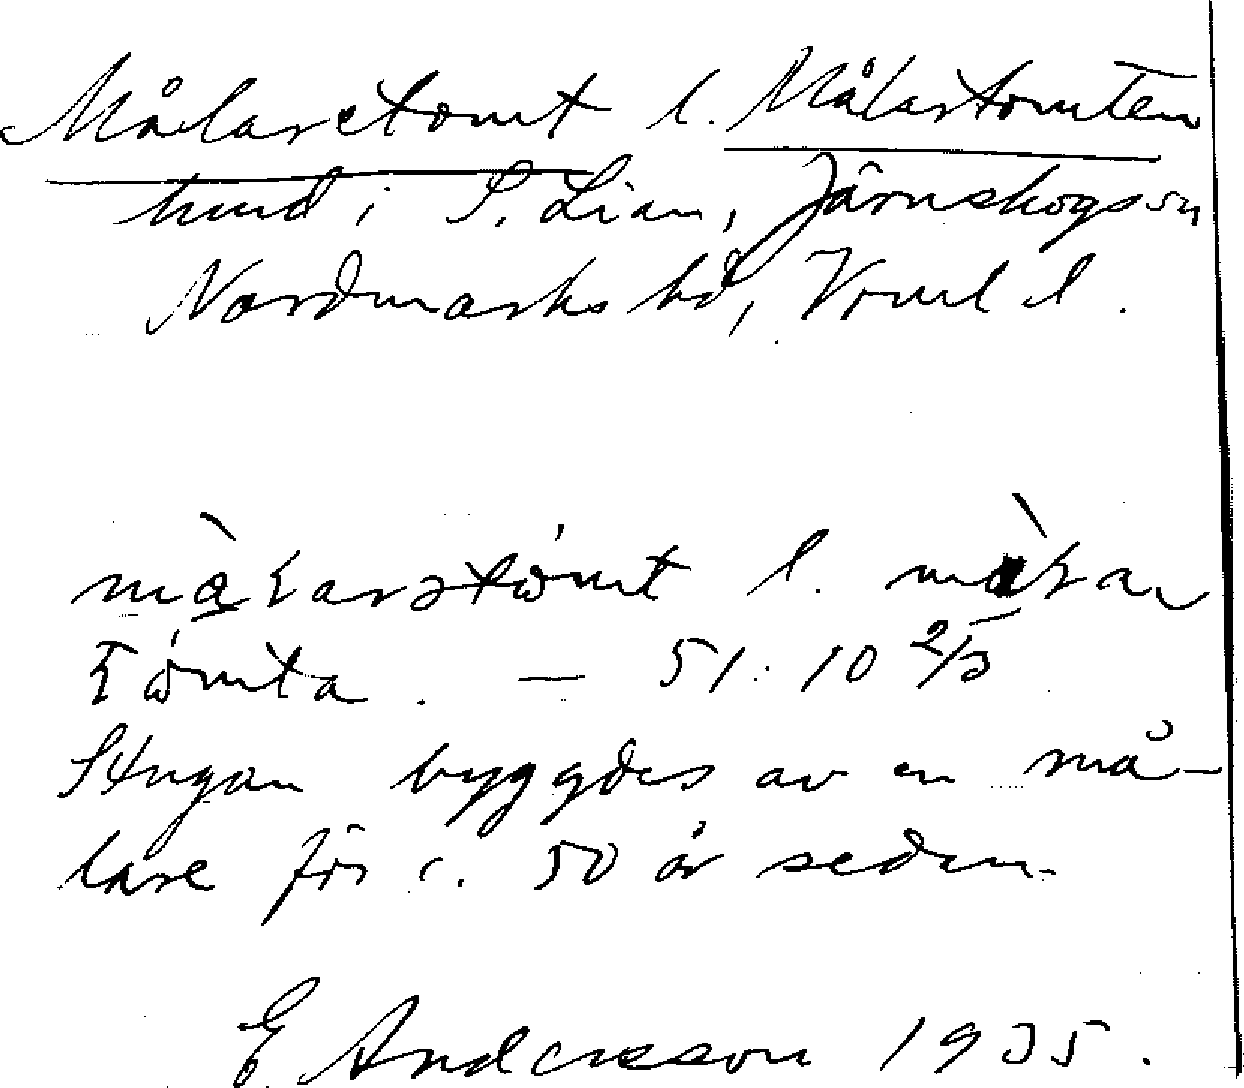 Målaretomt l. Målartomten
hmd i S. Lian, Järnskogs sn
Nordmarks hd, Vrml l.
l.
tǿmta. — 51:10 2/5
Stugan byggdes av en må-
lare för c. 50 år sedan.
E Andersson 1935.